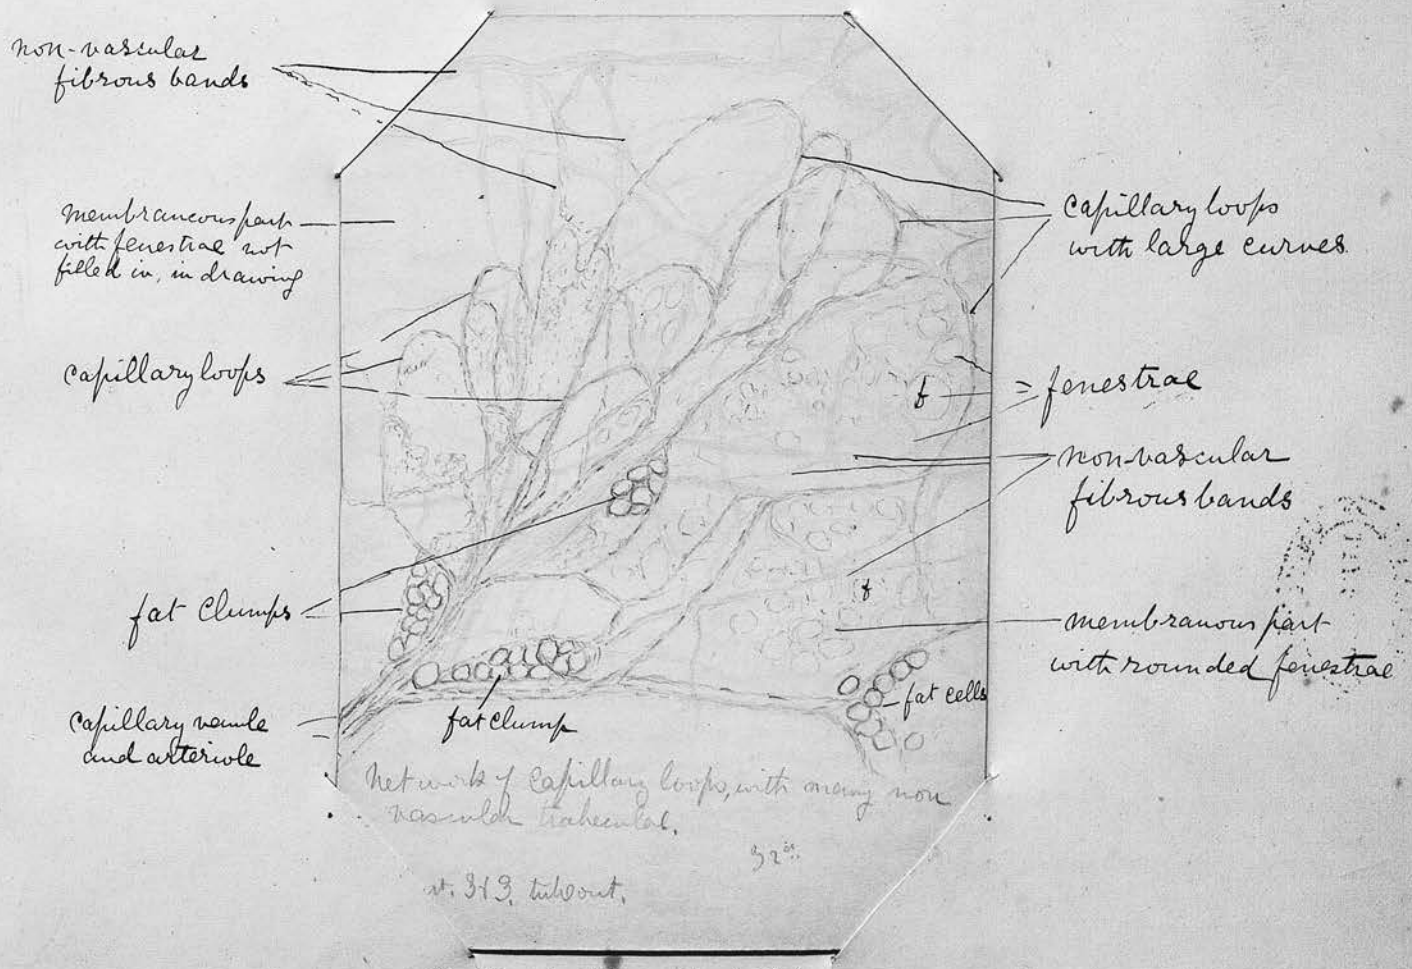 non-vascular
fibrous bands
membraneous part
with fenestrae not
filled in, in drawing
capillary loops
fat clumps
capillary venule
and arteriole
capillary loops
with large curves.
fenestrae
f
non-vascular
fibrous bands
f
membranous part
with rounded fenestrae
fat cells
fat clump
Network of Capillary loops, with many non
vascular trabeculae.